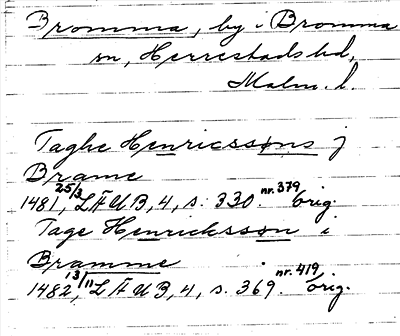 Bromma, by i Bromma
sn, Herrestads hd,
Malm. l.
Taghe Henricssøns j
Brame
1481 25/3, LÄUB, 4, s. 330. nr. 379 orig.
Tage Henricksson i
Bramme
1482 13/11, LÄUB, 4, s. 369. nr. 419. orig.